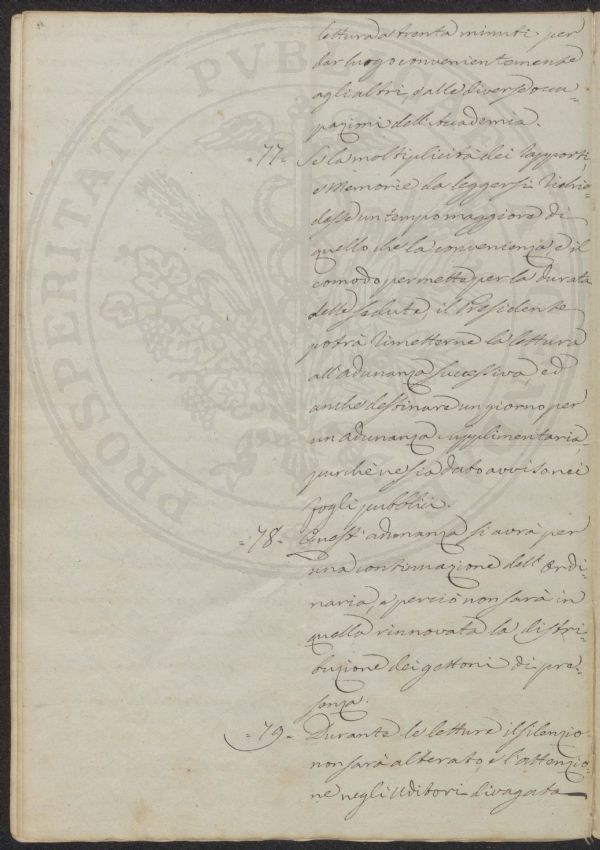 lettura a trenta minuti per
dar luogo convenientemente
agli altri, dalle diverse occu-
pazioni dell'Accademia.
77- Se la moltiplicità dei Rapporti,
e Memorie da leggersi richie-
desse un tempo maggiore di
quello che la convenienza, e il
comodo permette per la durata
delle sedute, il Presidente
potrà rimetterne la lettura
all'adunanza successiva, ed
anche destinare un giorno per
un adunanza supplimentaria,
purchè ne sia dato avviso nei
fogli pubblici.
-78- Quest'adunanza si avrà per
una continuazione dell'Ordi-
naria, e perciò non sarà in
quella rinnovata la distri-
buzione dei gettoni di pre-
senza.
-79- Durante le letture il silenzio
non sarà alterato, e l'attenzio-
ne negli Uditori divagata
PROSPERITATI PVBLICAE